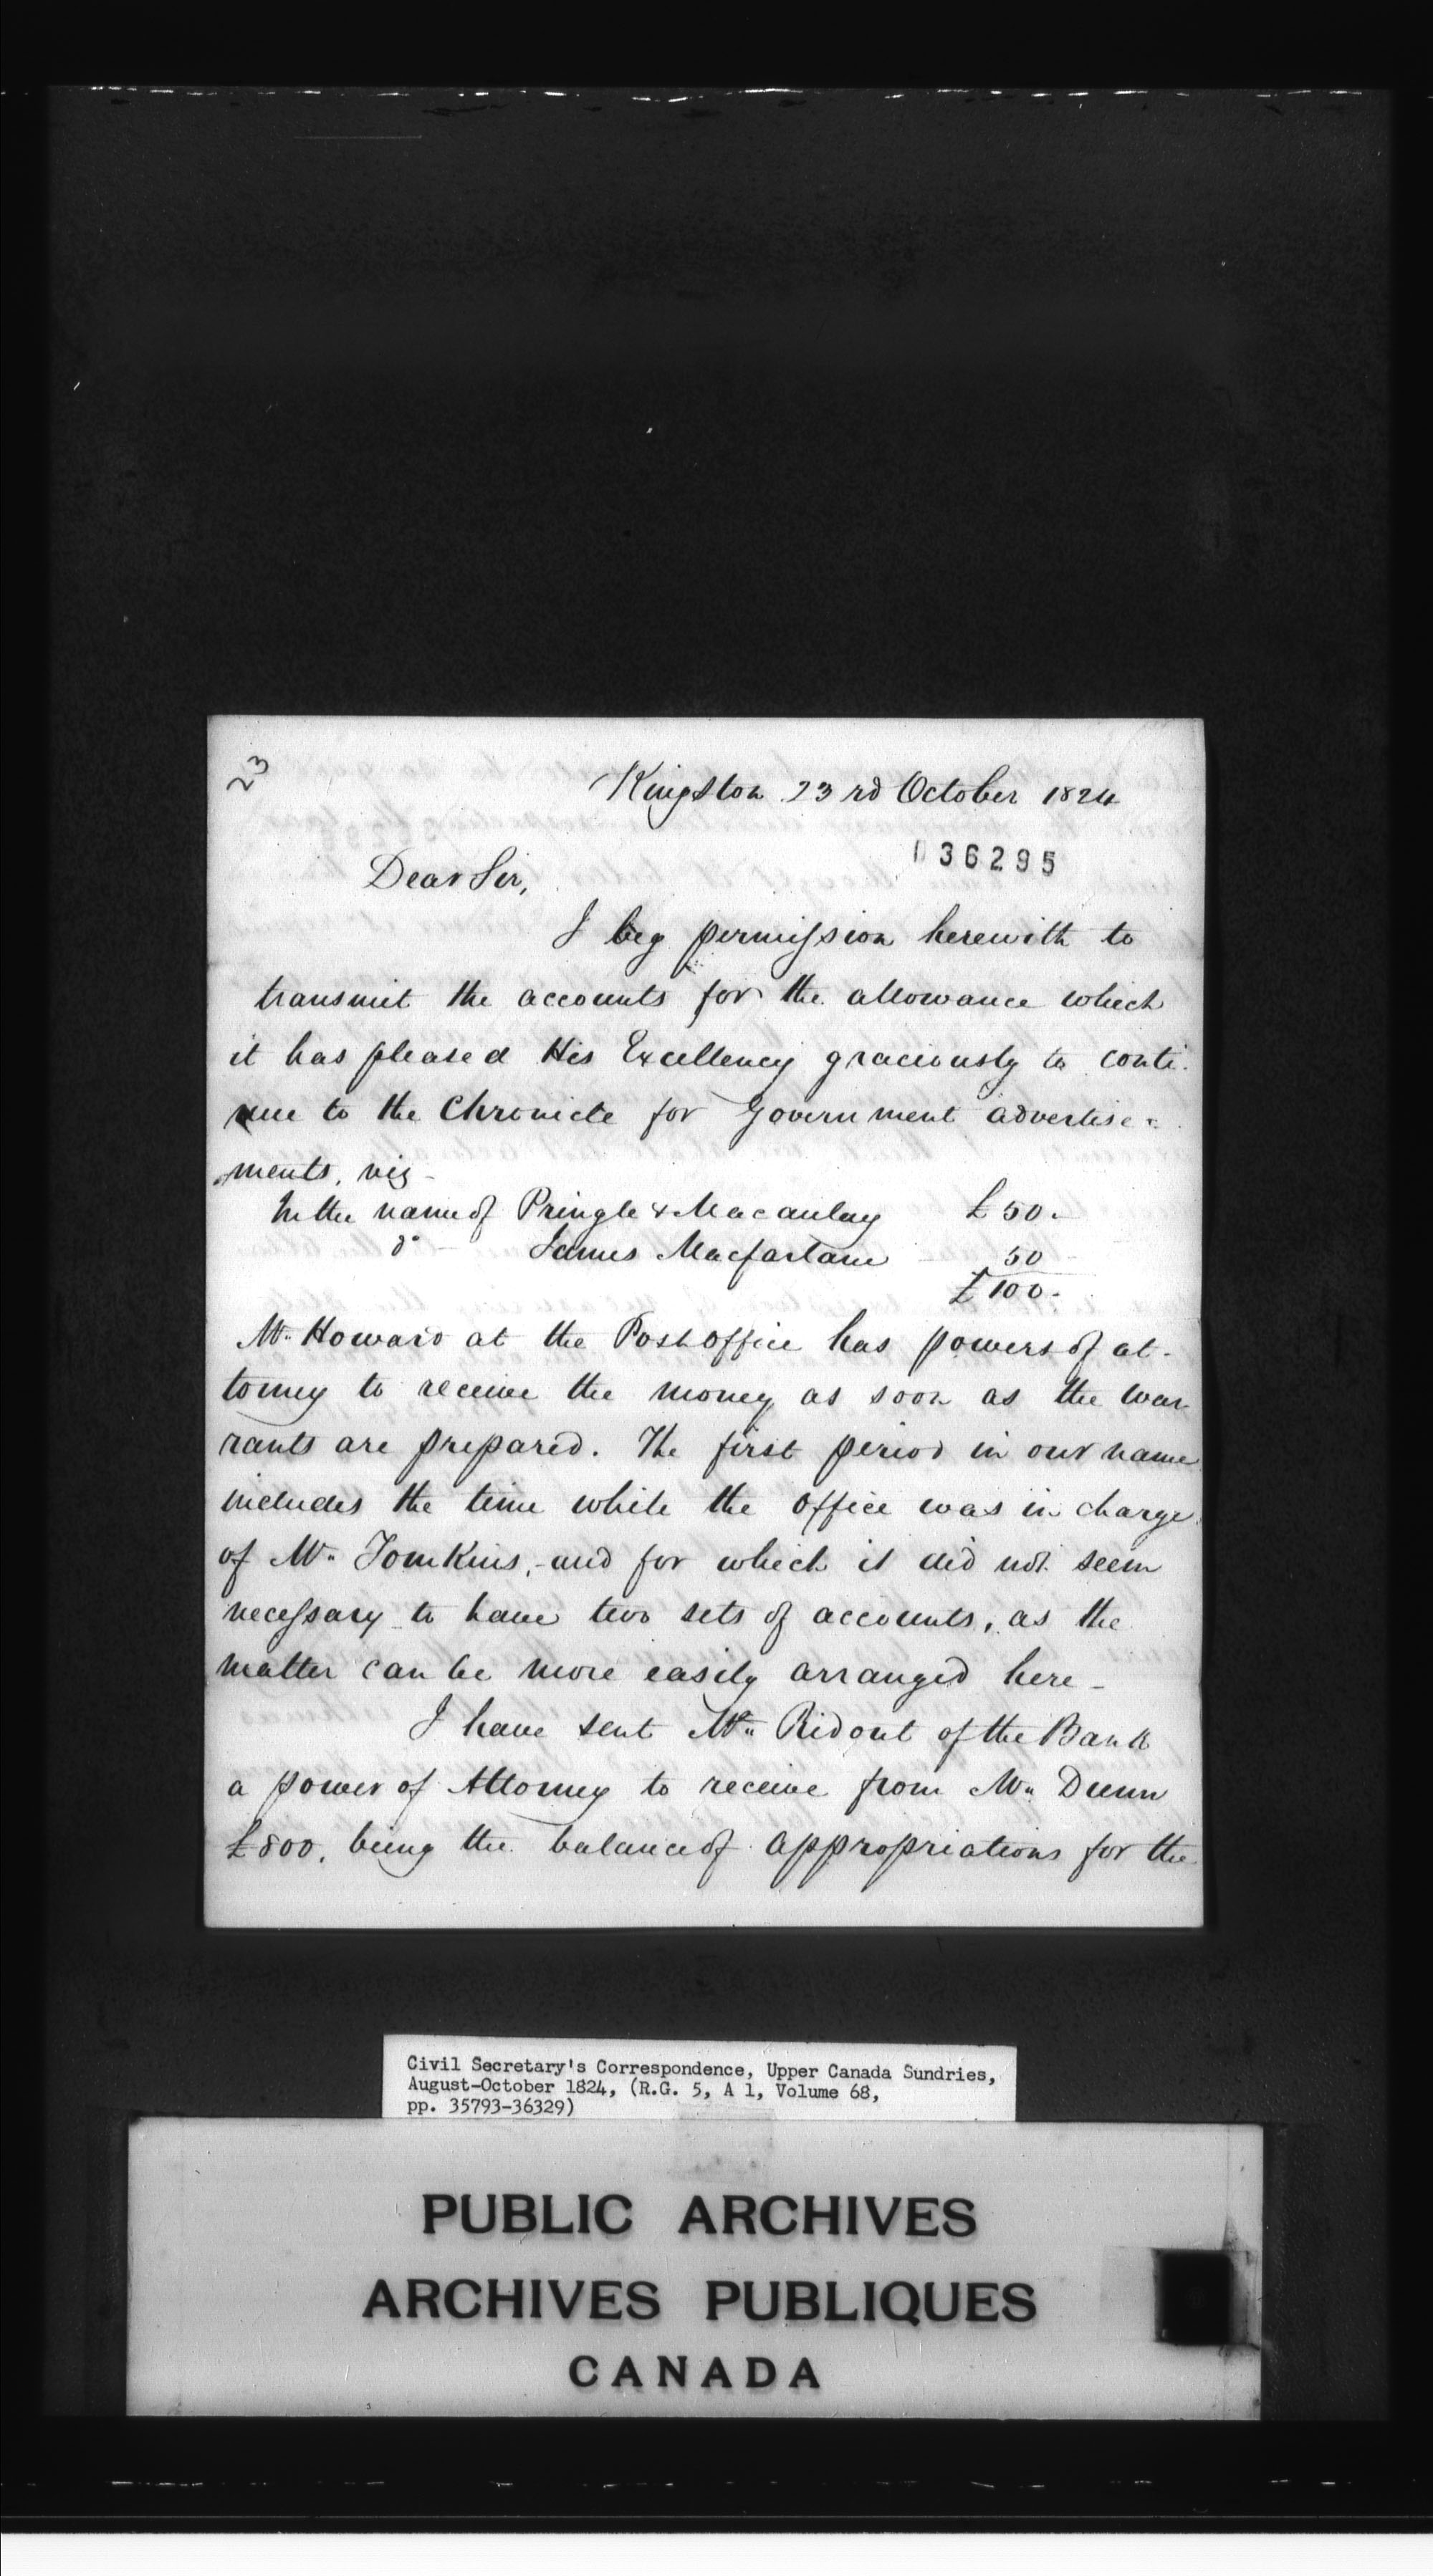 23
Kingston 23rd October 1824
036295
Dear Sir,
I beg permission herewith to
transmit the accounts for the allowance which
it has pleased His Excellency graciously to conti-
nue to the Chronicle for Government advertise-
ments, viz -
In the name of Pringle & Macaulay £50.
do - James Macfarlane 50
£100.
Mr. Howard at the Post Office has powers of at-
torney to receive the money as soon as the war-
rants are prepared. The first period in our name
includes the time while the office was in charge
of Mr. Tomkins, - and for which it did not seem
necessary to have two sets of accounts, as the
matter can be more easily arranged here -
I have sent Mr. Ridout of the Bank
a power of Attorney to receive from Mr. Dunn
£800, being the balance of appropriations for the
Civil Secretary's Correspondence, Upper Canada Sundries,
August-October 1824, (R.G. 5, A 1, Volume 68,
pp. 35793-36329)
PUBLIC ARCHIVES
ARCHIVES PUBLIQUES
CANADA